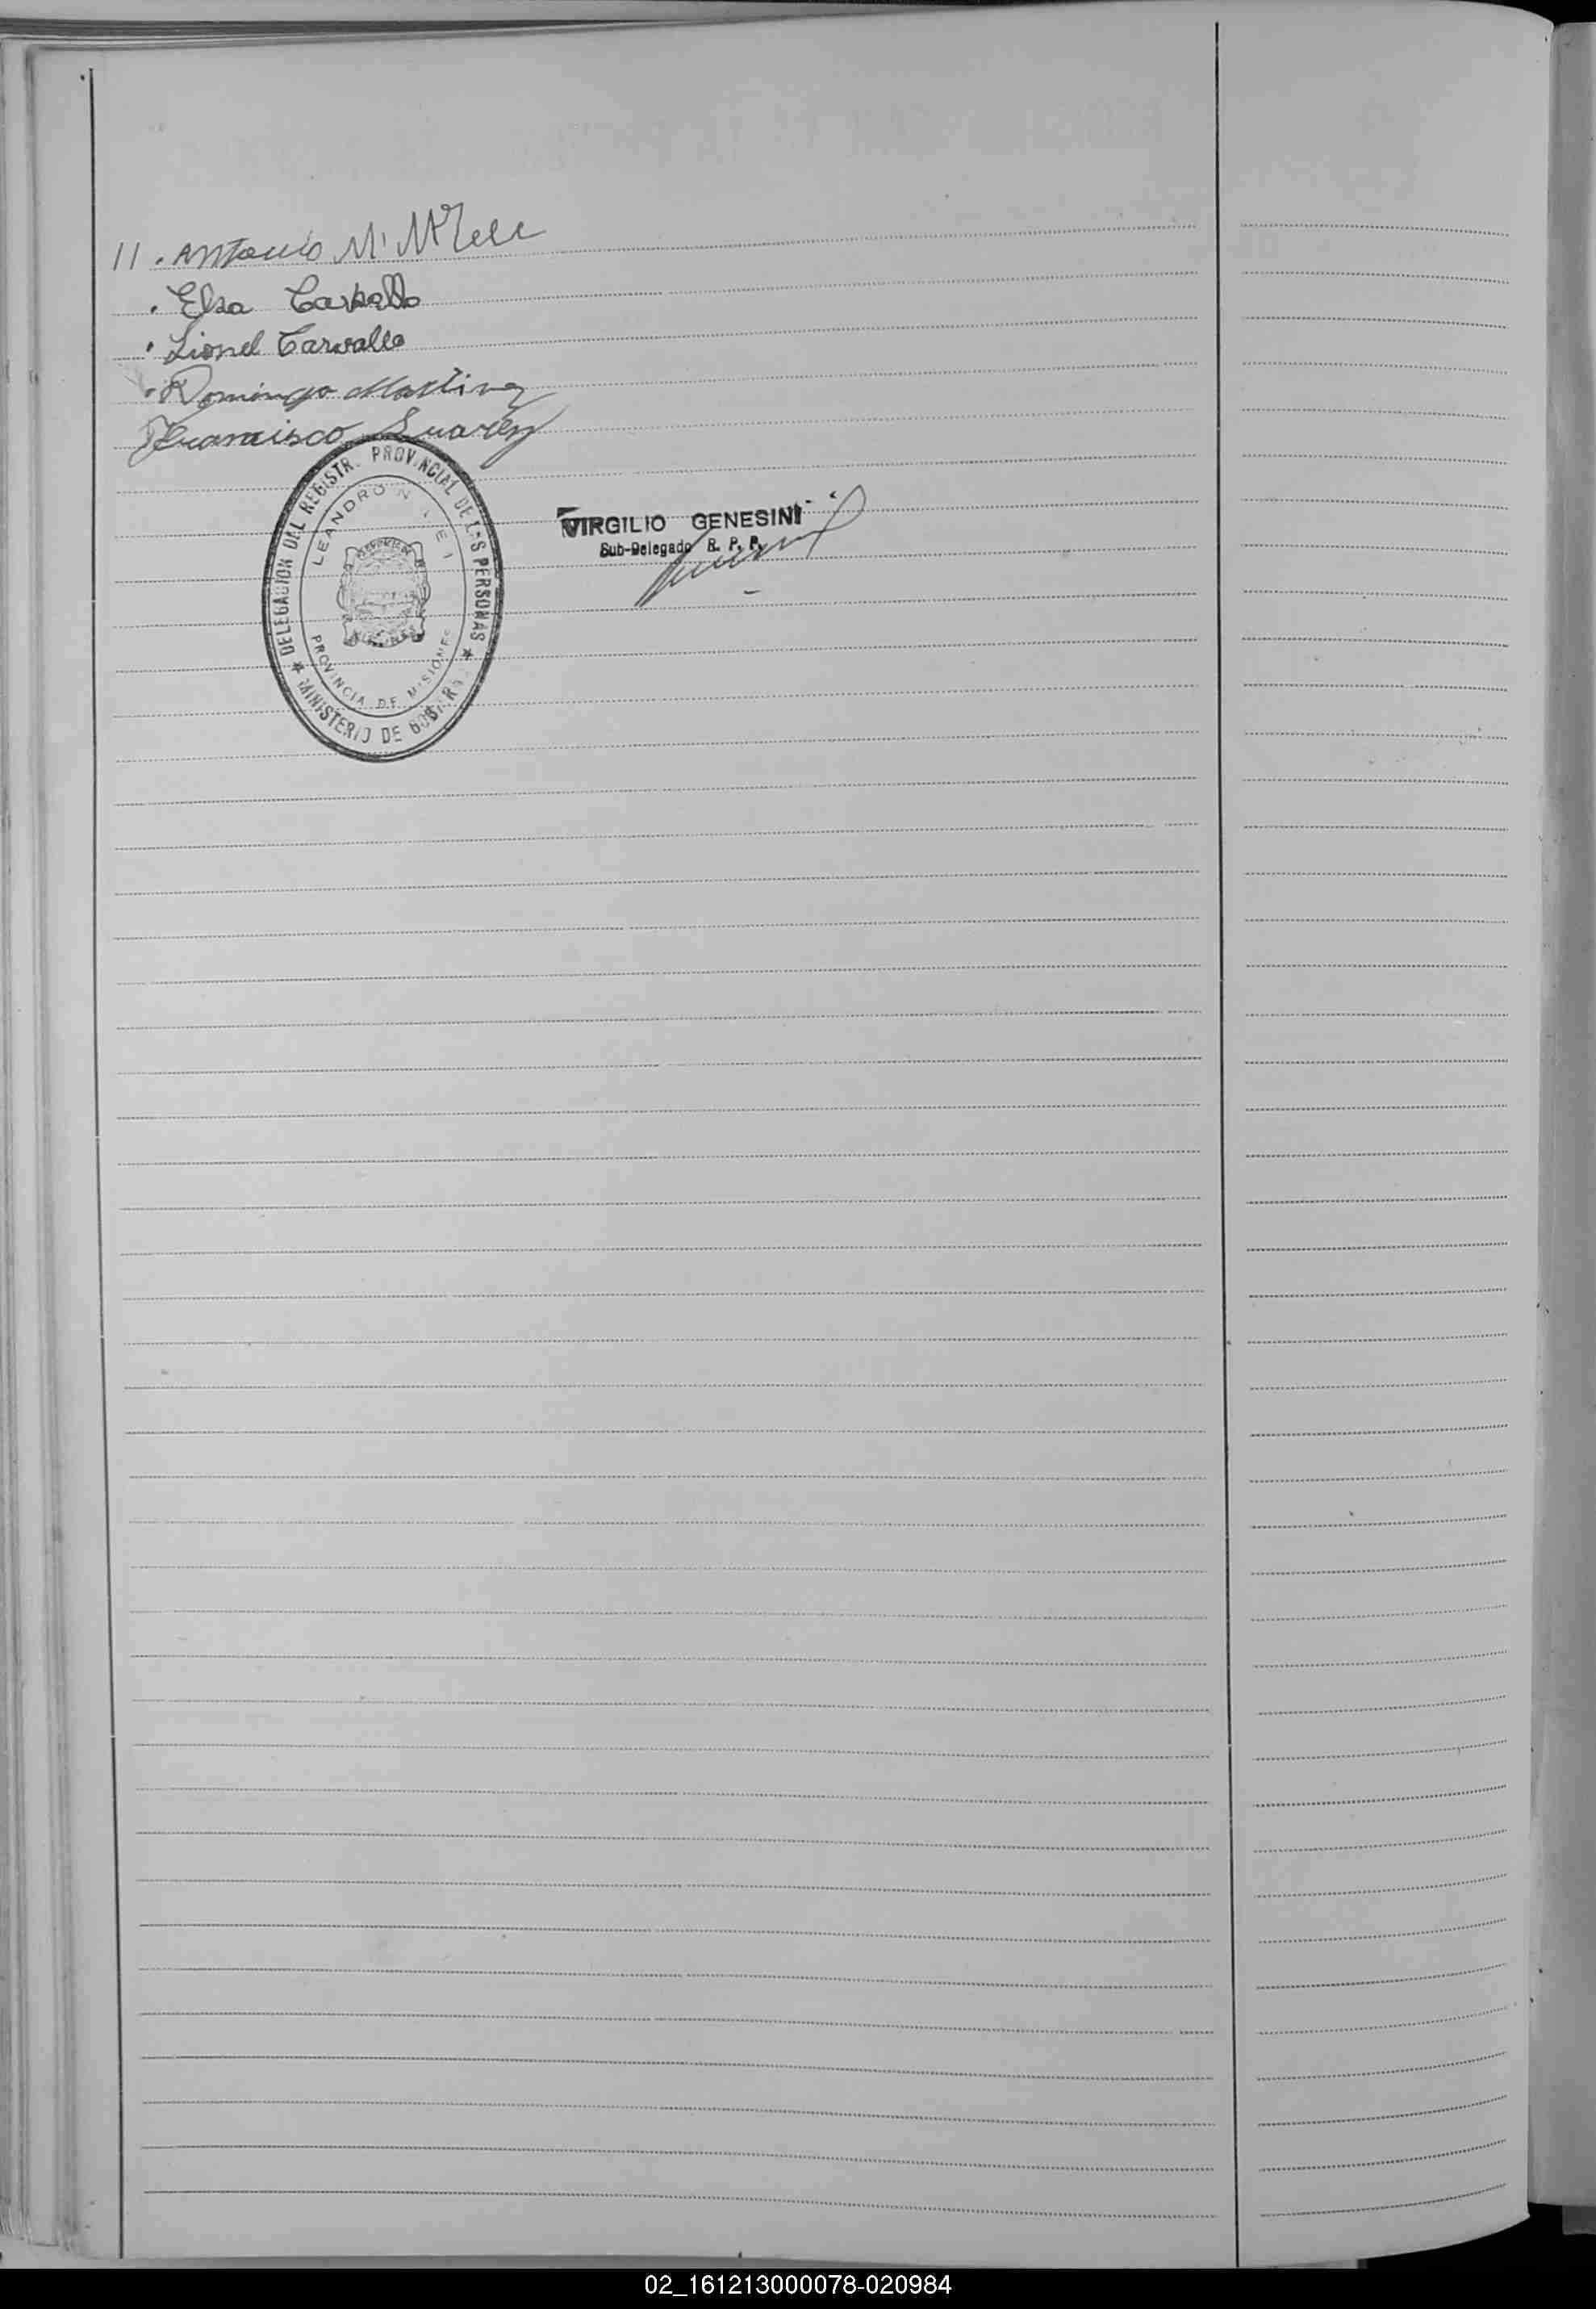 11 . Antonio M.
. Elsa Carvallo
. Lionel Carvallo
. Domingo Martinez
Francisco Suarez
DELEGACION DAL REGISTR. PROVINCIAL DE LAS PERSONAS
LEANDRO N
PROVINCIA DE MISIONES
* MINISTERIO DE *
VIRGILIO GENESINI
Sub-Delegado R. P. P.
02_161213000078-020984